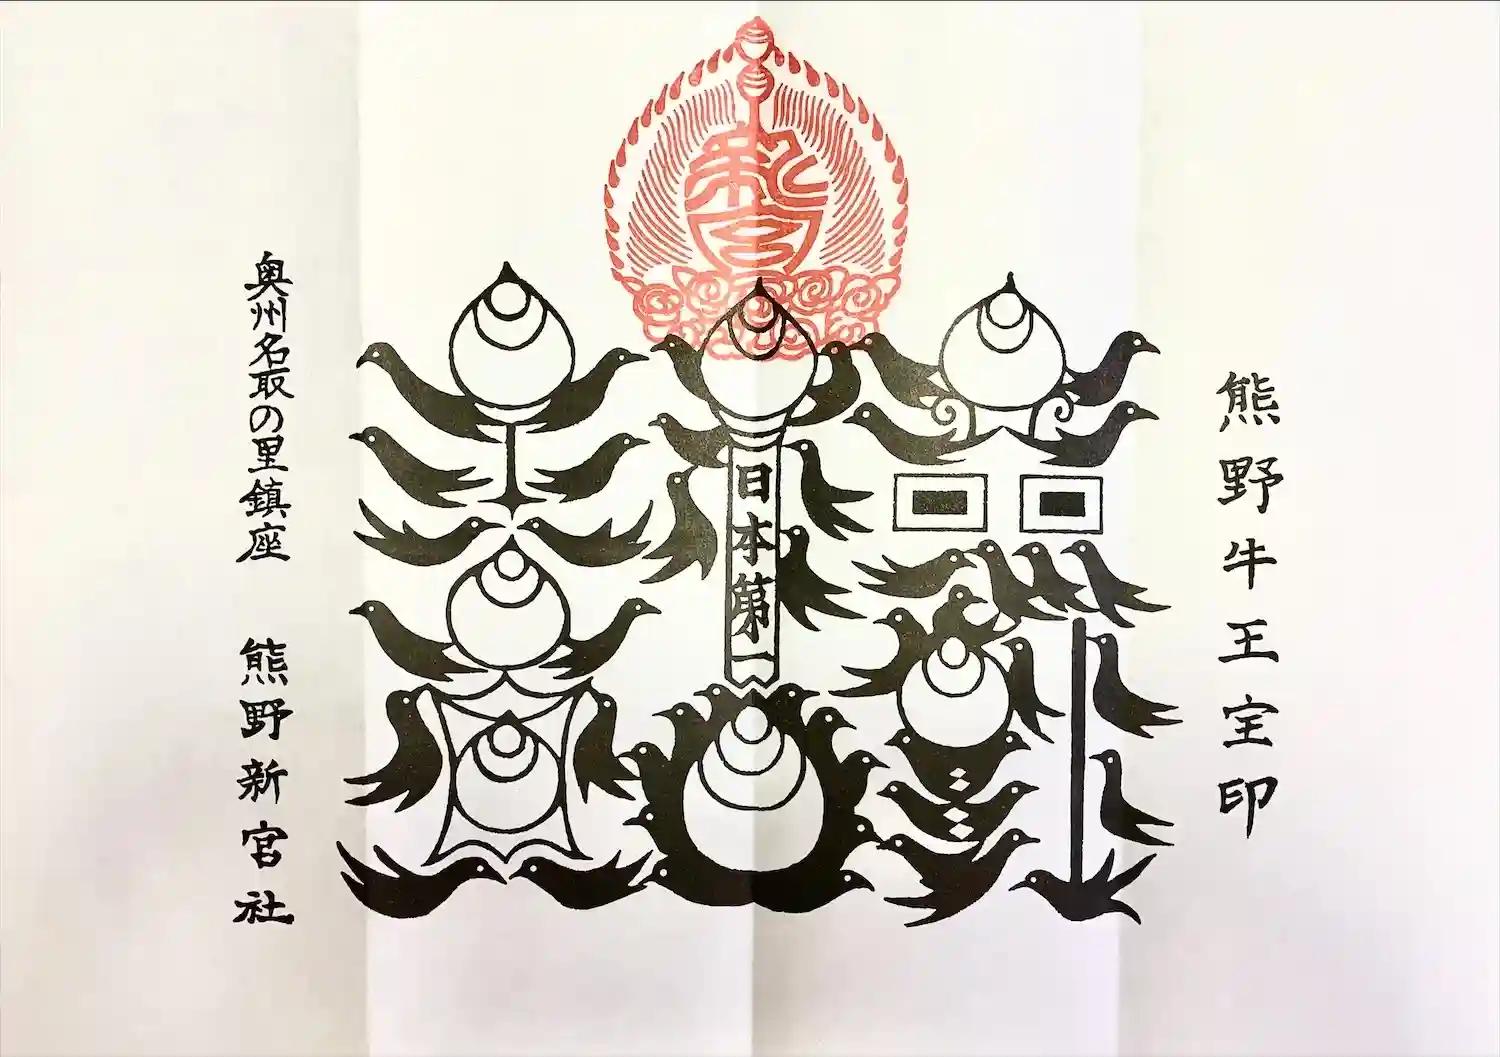 熊野牛王宝印
日本第一
奥州名取の里鎮座 熊野新宮社